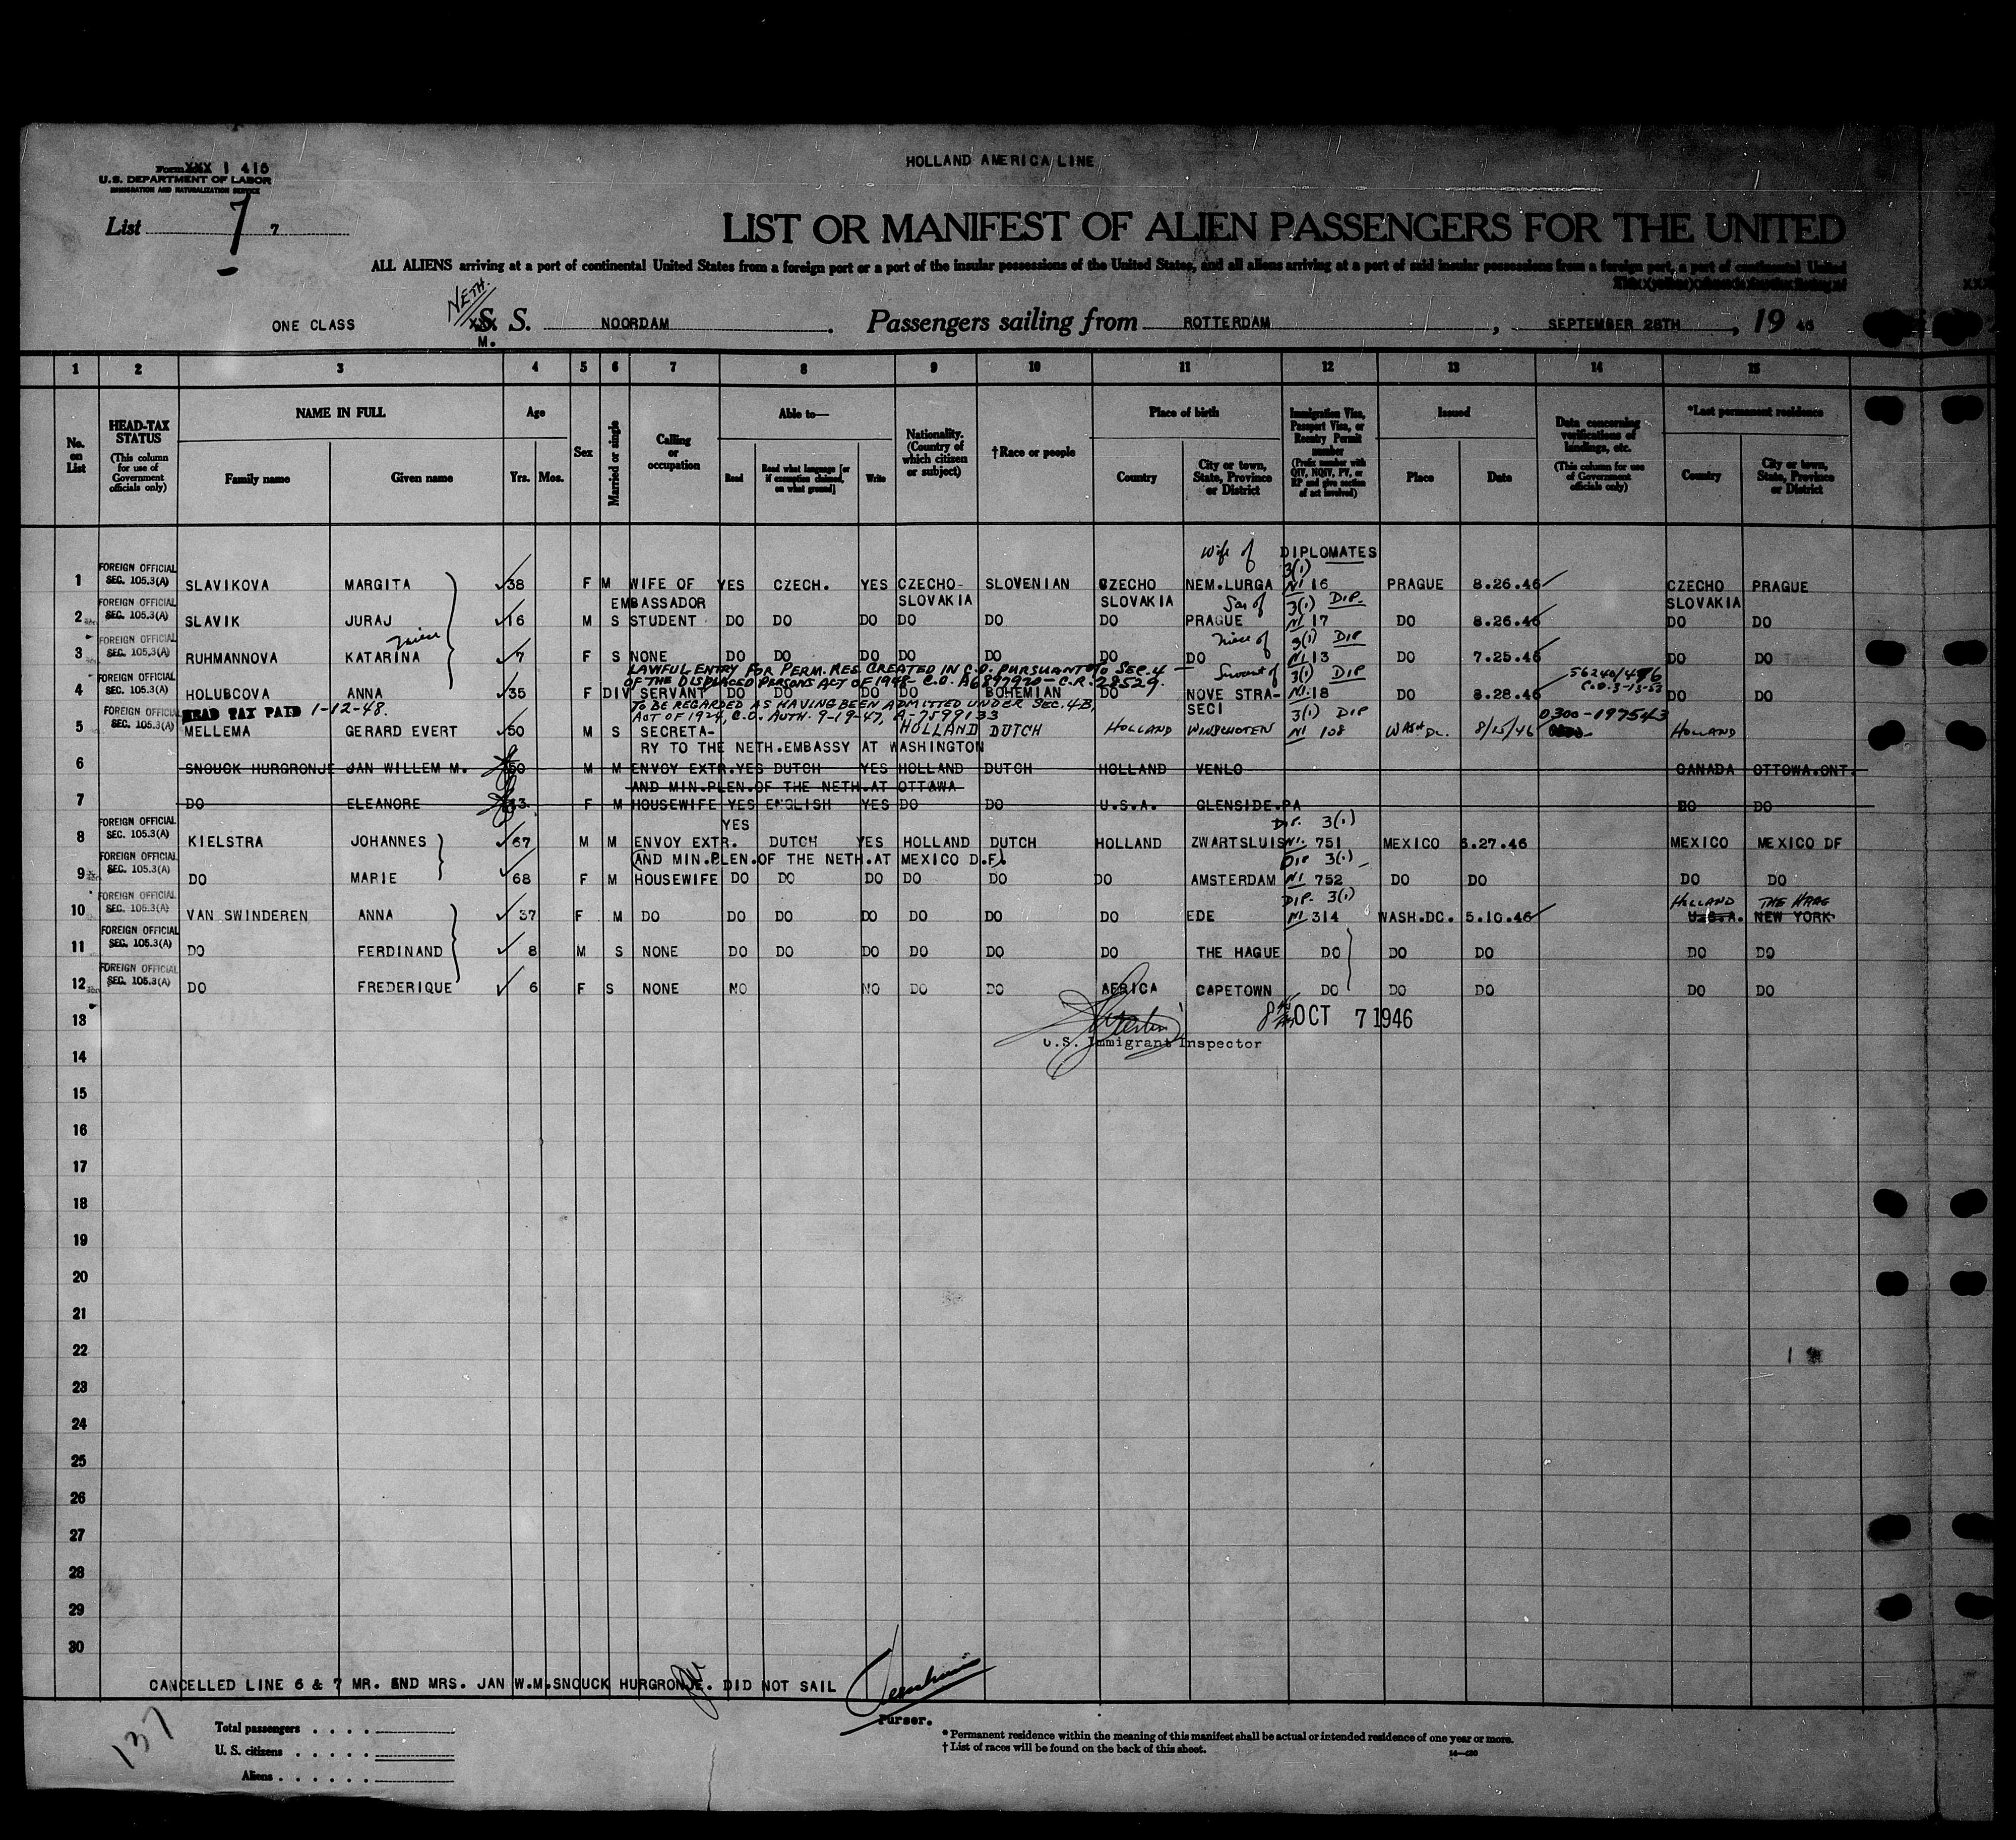 HOLLAND AMERICA LINE
Form XXX I 416
U.S. DEPARTMENT OF LABOR
IMMIGRATION AND NATURALIZATION SERVICE
List 7 7
LIST OR MANIFEST OF ALIEN PASSENGERS FOR THE UNITED
ALL ALIENS arriving at a port of continental United States from a foreign port or a port of the insular possessions of the United States, and all aliens arriving at a port of said insular possessions from a foreign port, a port of continental United
NETH.
ONE CLASS S. S. NOORDAM. Passengers sailing from ROTTERDAM, SEPTEMBER 28TH, 19 46
M.
1 2 3 4 5 6 7 8 9 10 11 12 13 14 15
No. on List
HEAD-TAX STATUS (This column for use of Government officials only)
NAME IN FULL Family name Given name
Age Yrs. Mos.
Sex
Married or single
Calling or occupation
Able to— Read Read what language [or if exemption claimed, on what ground] Write
Nationality. (Country of which citizen or subject)
†Race or people
Place of birth Country City or town, State, Province or District
Immigration Visa, Passport Visa, or Reentry Permit number (Prefix number with QIV, NQIV, PV, or RP and give section of act involved)
Issued Place Date
Data concerning verifications of landings, etc. (This column for use of Government officials only)
*Last permanent residence Country City or town, State, Province or District
Wife of DIPLOMATES
FOREIGN OFFICIAL 3(1)
1 SEC. 105.3(A) SLAVIKOVA MARGITA 38 F M WIFE OF YES CZECH. YES CZECHO- SLOVENIAN CZECHO NEM.LURGA NI 16 PRAGUE 8.26.46 CZECHO PRAGUE
FOREIGN OFFICIAL EMBASSADOR SLOVAKIA SLOVAKIA Son of 3(1) DIP. SLOVAKIA
2 SEC. 105.3(A) SLAVIK JURAJ 16 M S STUDENT DO DO DO DO DO DO PRAGUE NI 17 DO 8.26.46 DO DO
FOREIGN OFFICIAL niece Niece of 3(1) DIP
3 SEC. 105.3(A) RUHMANNOVA KATARINA 7 F S NONE DO DO DO DO DO DO DO NI 13 DO 7.25.46 DO DO
LAWFUL ENTRY FOR PERM. RES. CREATED IN C.O. PURSUANT TO SEC. 4
FOREIGN OFFICIAL OF THE DISPLACED PERSONS ACT OF 1948- C.O. A6897970- C.R. 28529. Servant of 3(1) DIP 56240/476
C.O. 3-13-53
4 SEC. 105.3(A) HOLUBCOVA ANNA 35 F DIV SERVANT DO DO DO DO BOHEMIAN DO NOVE STRA- NI 18 DO 8.28.46 DO DO
SECI
HEAD TAX PAID 1-12-48. TO BE REGARDED AS HAVING BEEN ADMITTED UNDER SEC. 4-B,
FOREIGN OFFICIAL ACT OF 1924, C.O. AUTH. 9-19-47, A-7599133 3(1) DIP 0300-197543
5 SEC. 105.3(A) MELLEMA GERARD EVERT 50 M S SECRETA- HOLLAND DUTCH HOLLAND WINSCHOTEN NI 108 WASH DC. 8/15/46 HOLLAND
RY TO THE NETH.EMBASSY AT WASHINGTON
6 SNOUCK HURGRONJE JAN WILLEM M. 50 M M ENVOY EXTR.YES DUTCH YES HOLLAND DUTCH HOLLAND VENLO CANADA OTTOWA.ONT.
AND MIN.PLEN.OF THE NETH.AT OTTAWA
7 DO ELEANORE 43 F M HOUSEWIFE YES ENGLISH YES DO DO U.S.A. GLENSIDE.PA DO DO
FOREIGN OFFICIAL YES DIP. 3(1)
8 SEC. 105.3(A) KIELSTRA JOHANNES 67 M M ENVOY EXTR. DUTCH YES HOLLAND DUTCH HOLLAND ZWARTSLUIS NI. 751 MEXICO 6.27.46 MEXICO MEXICO DF
FOREIGN OFFICIAL (AND MIN.PLEN.OF THE NETH.AT MEXICO D.F). DIP 3(1)
9 SEC. 105.3(A) DO MARIE 68 F M HOUSEWIFE DO DO DO DO DO DO AMSTERDAM NI 752 DO DO DO DO
FOREIGN OFFICIAL DIP. 3(1) HOLLAND THE HAAG
10 SEC. 105.3(A) VAN SWINDEREN ANNA 37 F M DO DO DO DO DO DO DO EDE NI 314 WASH.DC. 5.10.46 U.S.A. NEW YORK
FOREIGN OFFICIAL
11 SEC. 105.3(A) DO FERDINAND 8 M S NONE DO DO DO DO DO DO THE HAGUE DO DO DO DO DO
FOREIGN OFFICIAL
12 SEC. 105.3(A) DO FREDERIQUE 6 F S NONE NO NO DO DO AFRICA CAPETOWN DO DO DO DO DO
13 OCT 7 1946
U.S. Immigrant Inspector
14
15
16
17
18
19
20
21
22
23
24
25
26
27
28
29
30
CANCELLED LINE 6 & 7 MR. END MRS. JAN W.M.SNOUCK HURGRONJE. DID NOT SAIL
Purser.
137
Total passengers . . . .
U. S. citizens . . . . .
Aliens . . . . . .
* Permanent residence within the meaning of this manifest shall be actual or intended residence of one year or more.
† List of races will be found on the back of this sheet.
14—430